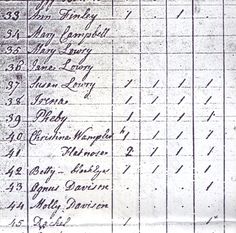 33 Ann Finley 1 1 1
34 Mary Campbell
35 Mary Lowry
36 Jane Lowry
37 Susan Lowry 1 1 1 1
38 1 1 1 1
39 Pheby 1 1 1 1
40 Christina Wampler 1 1 1 1
41 Flatnose 2 1 1 1
42 Betty 1 1 1 1
43 Agnus Davison 1
44 Molly Davison
45 Rachel 1 1